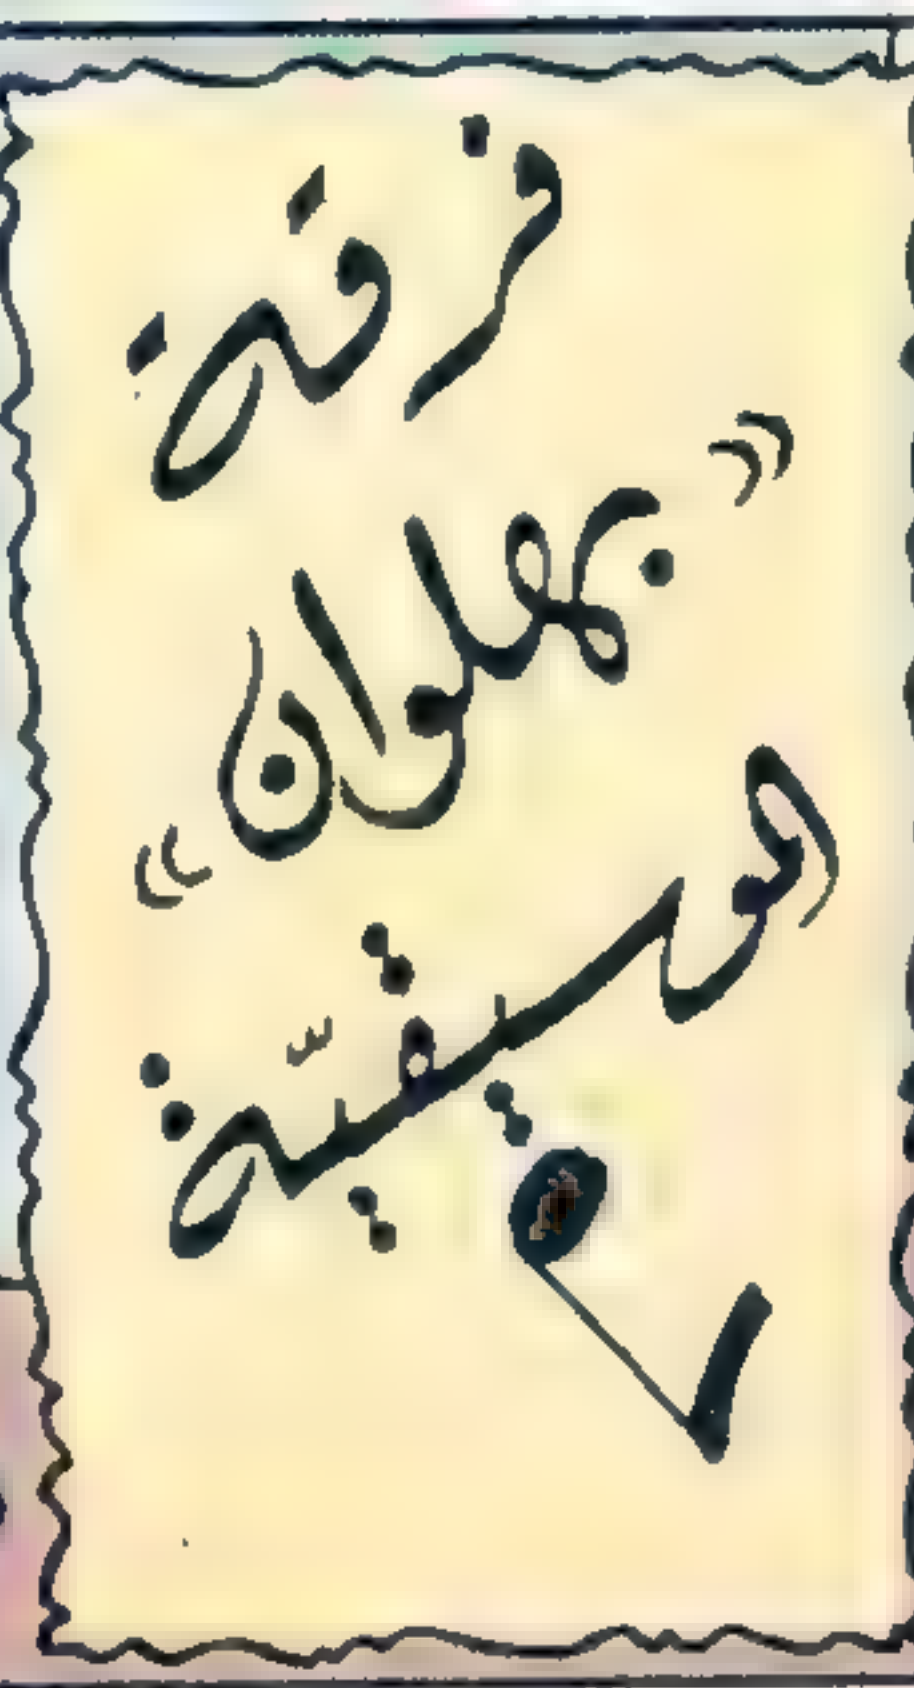 فرقة
« بهلوان »
الموسيقيّة